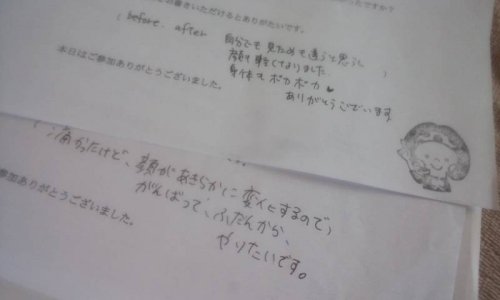 お書きいただけるとありがたいです。
(before、after 自分でも見ためも違うと思うし )
顔も軽くなりました。
身体もポカポカ♥
ありがとうございます。
本日はご参加ありがとうございました。
痛かったけど、顔があきらかに変化するので、
がんばって、ふだんから、
やりたいです。
参加ありがとうございました。